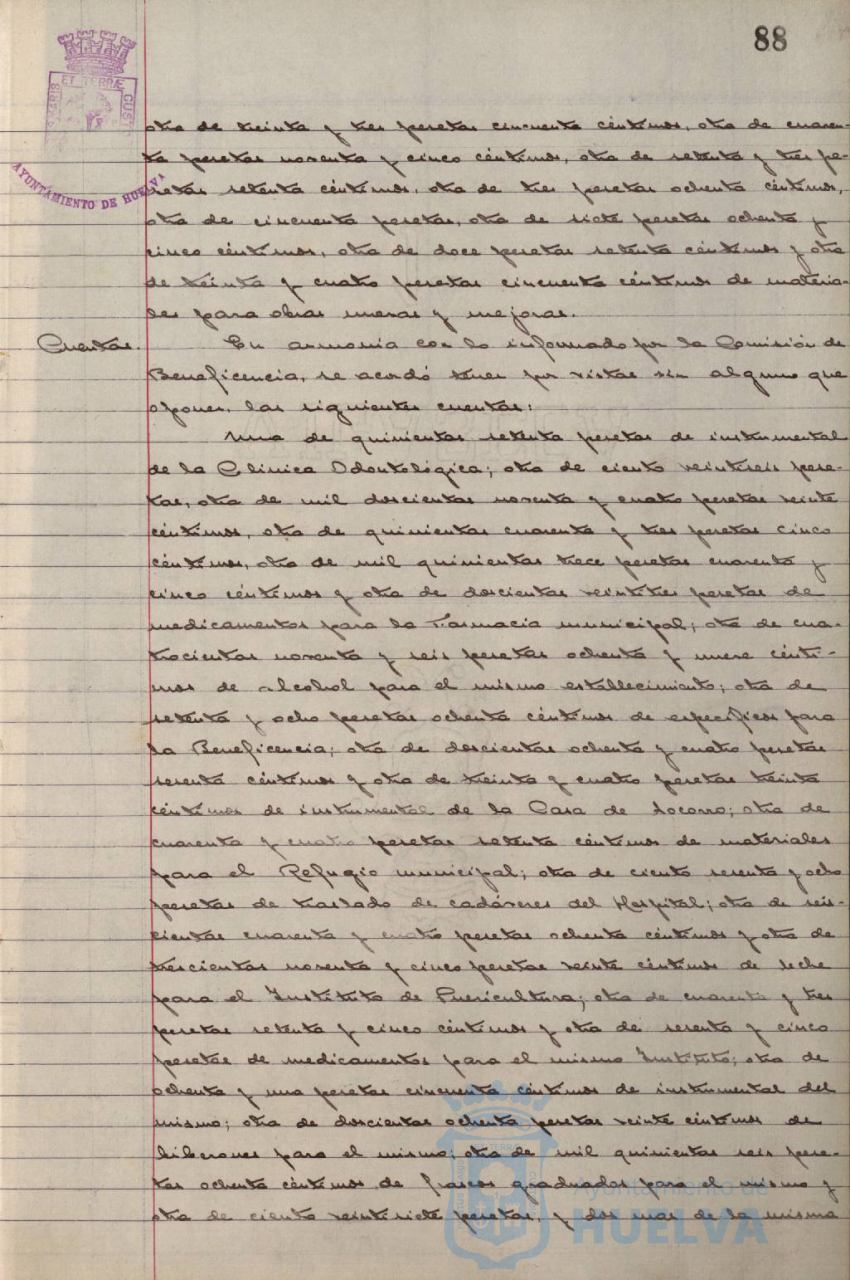 88
ET TERRÆ CUST
AYUNTAMIENTO DE HUELVA
otra de treinta y tres pesetas cincuenta céntimos, otra de cuaren-
ta pesetas noventa y cinco céntimos, otra de setenta y tres pe-
setas setenta céntimos, otra de tres pesetas ochenta céntimos,
otra de cincuenta pesetas, otra de siete pesetas ochenta y
cinco céntimos, otra de doce pesetas setenta céntimos y otra
de treinta y cuatro pesetas cincuenta céntimos de materia-
les para obras nuevas y mejoras.
Cuentas. En armonía con lo informado por la Comisión de
Beneficencia, se acordó tener por vistas sin alguno que
oponer, las siguientes cuentas:
Una de quinientas setenta pesetas de instrumental
de la Clínica Odontológica; otra de ciento veintiseis pese-
tas, otra de mil doscientas noventa y cuatro pesetas veinte
céntimos, otra de quinientas cuarenta y tres pesetas cinco
céntimos, otra de mil quinientas trece pesetas cuarenta y
cinco céntimos y otra de doscientas veintitres pesetas de
medicamentos para la Farmacia municipal; otra de cua-
trocientas noventa y seis pesetas ochenta y nueve cénti-
mos de alcohol para el mismo establecimiento; otra de
setenta y ocho pesetas ochenta céntimos de específicos para
la Beneficencia; otra de doscientas ochenta y cuatro pesetas
sesenta céntimos y otra de treinta y cuatro pesetas treinta
céntimos de instrumental de la Casa de Socorro; otra de
cuarenta y cuatro pesetas setenta céntimos de materiales
para el Refugio municipal; otra de ciento sesenta y ocho
pesetas de traslado de cadáveres del Hospital; otra de seis-
cientas cuarenta y cuatro pesetas ochenta céntimos y otra de
trescientas noventa y cinco pesetas veinte céntimos de leche
para el Instituto de Puericultura; otra de cuarenta y tres
pesetas setenta y cinco céntimos y otra de sesenta y cinco
pesetas de medicamentos para el mismo Instituto; otra de
ochenta y una pesetas cincuenta céntimos de instrumental del
mismo; otra de doscientas ochenta pesetas veinte céntimos de
biberones para el mismo; otra de mil quinientas seis pese-
tas ochenta céntimos de frascos graduados para el mismo y
otra de ciento veintisiete pesetas, y dos mas de la misma
Ayuntamiento de
HUELVA